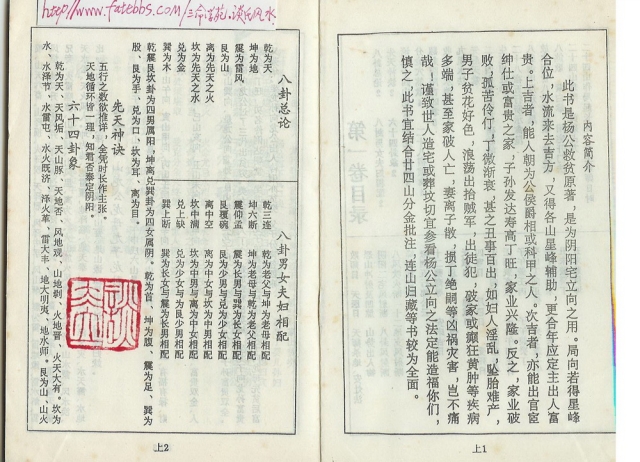 内容简介
此书是杨公救贫原著，是为阴阳宅立向之用。局向若得星峰
合位，水流来去吉方，又得各山星峰辅助，更合年应定主出人富
贵。上吉者，能人朝为公侯爵相或科甲之人。次吉者，亦能出官宦
绅仕或富贵之家，子孙发达寿高丁旺，家业兴隆。反之，家业破
败，孤苦伶仃，丁微渐衰，甚之丑事百出，如妇人淫乱，坠胎难产，
男子贫花好色，浪荡出抬贼军，出徒犯，破家或癫狂黄肿等疾病
多端，甚至家破人亡，妻离子散，损丁绝嗣等凶祸灾害，岂不痛
哉！谨致世人造宅或葬坟切宜参看杨公立向之法定能造福你们，
慎之，此书宜结合廿四山分金批注，连山归藏等书较为全面。
上1
http://www.fatebbs.com/三命清苑，谈氏风水
八卦总论
八卦男女夫妇相配
乾为天 乾三连 乾为老父与坤为老母相配
坤为地 坤六断 坤为老母与乾为老父相配
震为雷风 震仰盂 震为长男与巽为长女相配
艮为山 艮覆碗 艮为少男与兑为少女相配
离为先天之火 离中空 离为中女与坎为中男相配
坎为先天之水 坎中满 坎为中男与离为中女相配
兑为金 兑上缺 兑为少女与为艮少男相配
巽为木 巽上断 巽为长女与震为长男相配
乾震艮坎卦为四男属阳，坤离兑巽卦为四女属阴。乾为首、坤为腹、震为足、巽为
股、艮为手、兑为口、坎为耳、离为目。
先天神诀
五行之数欲推详，全凭时长作主张。
天地循环皆一理，知君否泰定阴阳。
六十四卦象
乾为天、天风垢、天山豚、天地否、风地观、山地剥、火地晋、火天大有。坎为
水、水泽节、水雷屯、水火既济、泽火革、雷火丰、地火明夷、地水师。艮为山、山火
上2